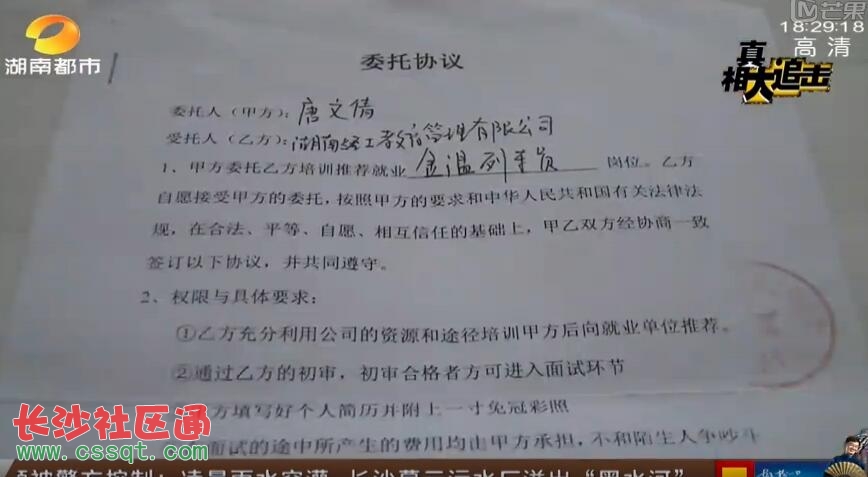 芒果
18:29:18
高清
湖南都市
真相大追击
委托协议
委托人（甲方）：唐文倩
受托人（乙方）：湖南 教育管理有限公司
1、甲方委托乙方培训推荐就业 金温列车员 岗位。乙方
自愿接受甲方的委托，按照甲方的要求和中华人民共和国有关法律法
规，在合法、平等、自愿、相互信任的基础上，甲乙双方经协商一致
签订以下协议，并共同遵守。
2、权限与具体要求：
①乙方充分利用公司的资源和途径培训甲方后向就业单位推荐。
②通过乙方的初审，初审合格者方可进入面试环节
方填写好个人简历并附上一寸免冠彩照
面试的途中所产生的费用均由甲方承担，不和陌生人争吵斗
长沙社区通
www.cssqt.com
被警方控制；凌晨雨水突灌 长沙暮云污水厂溢出“黑水河”